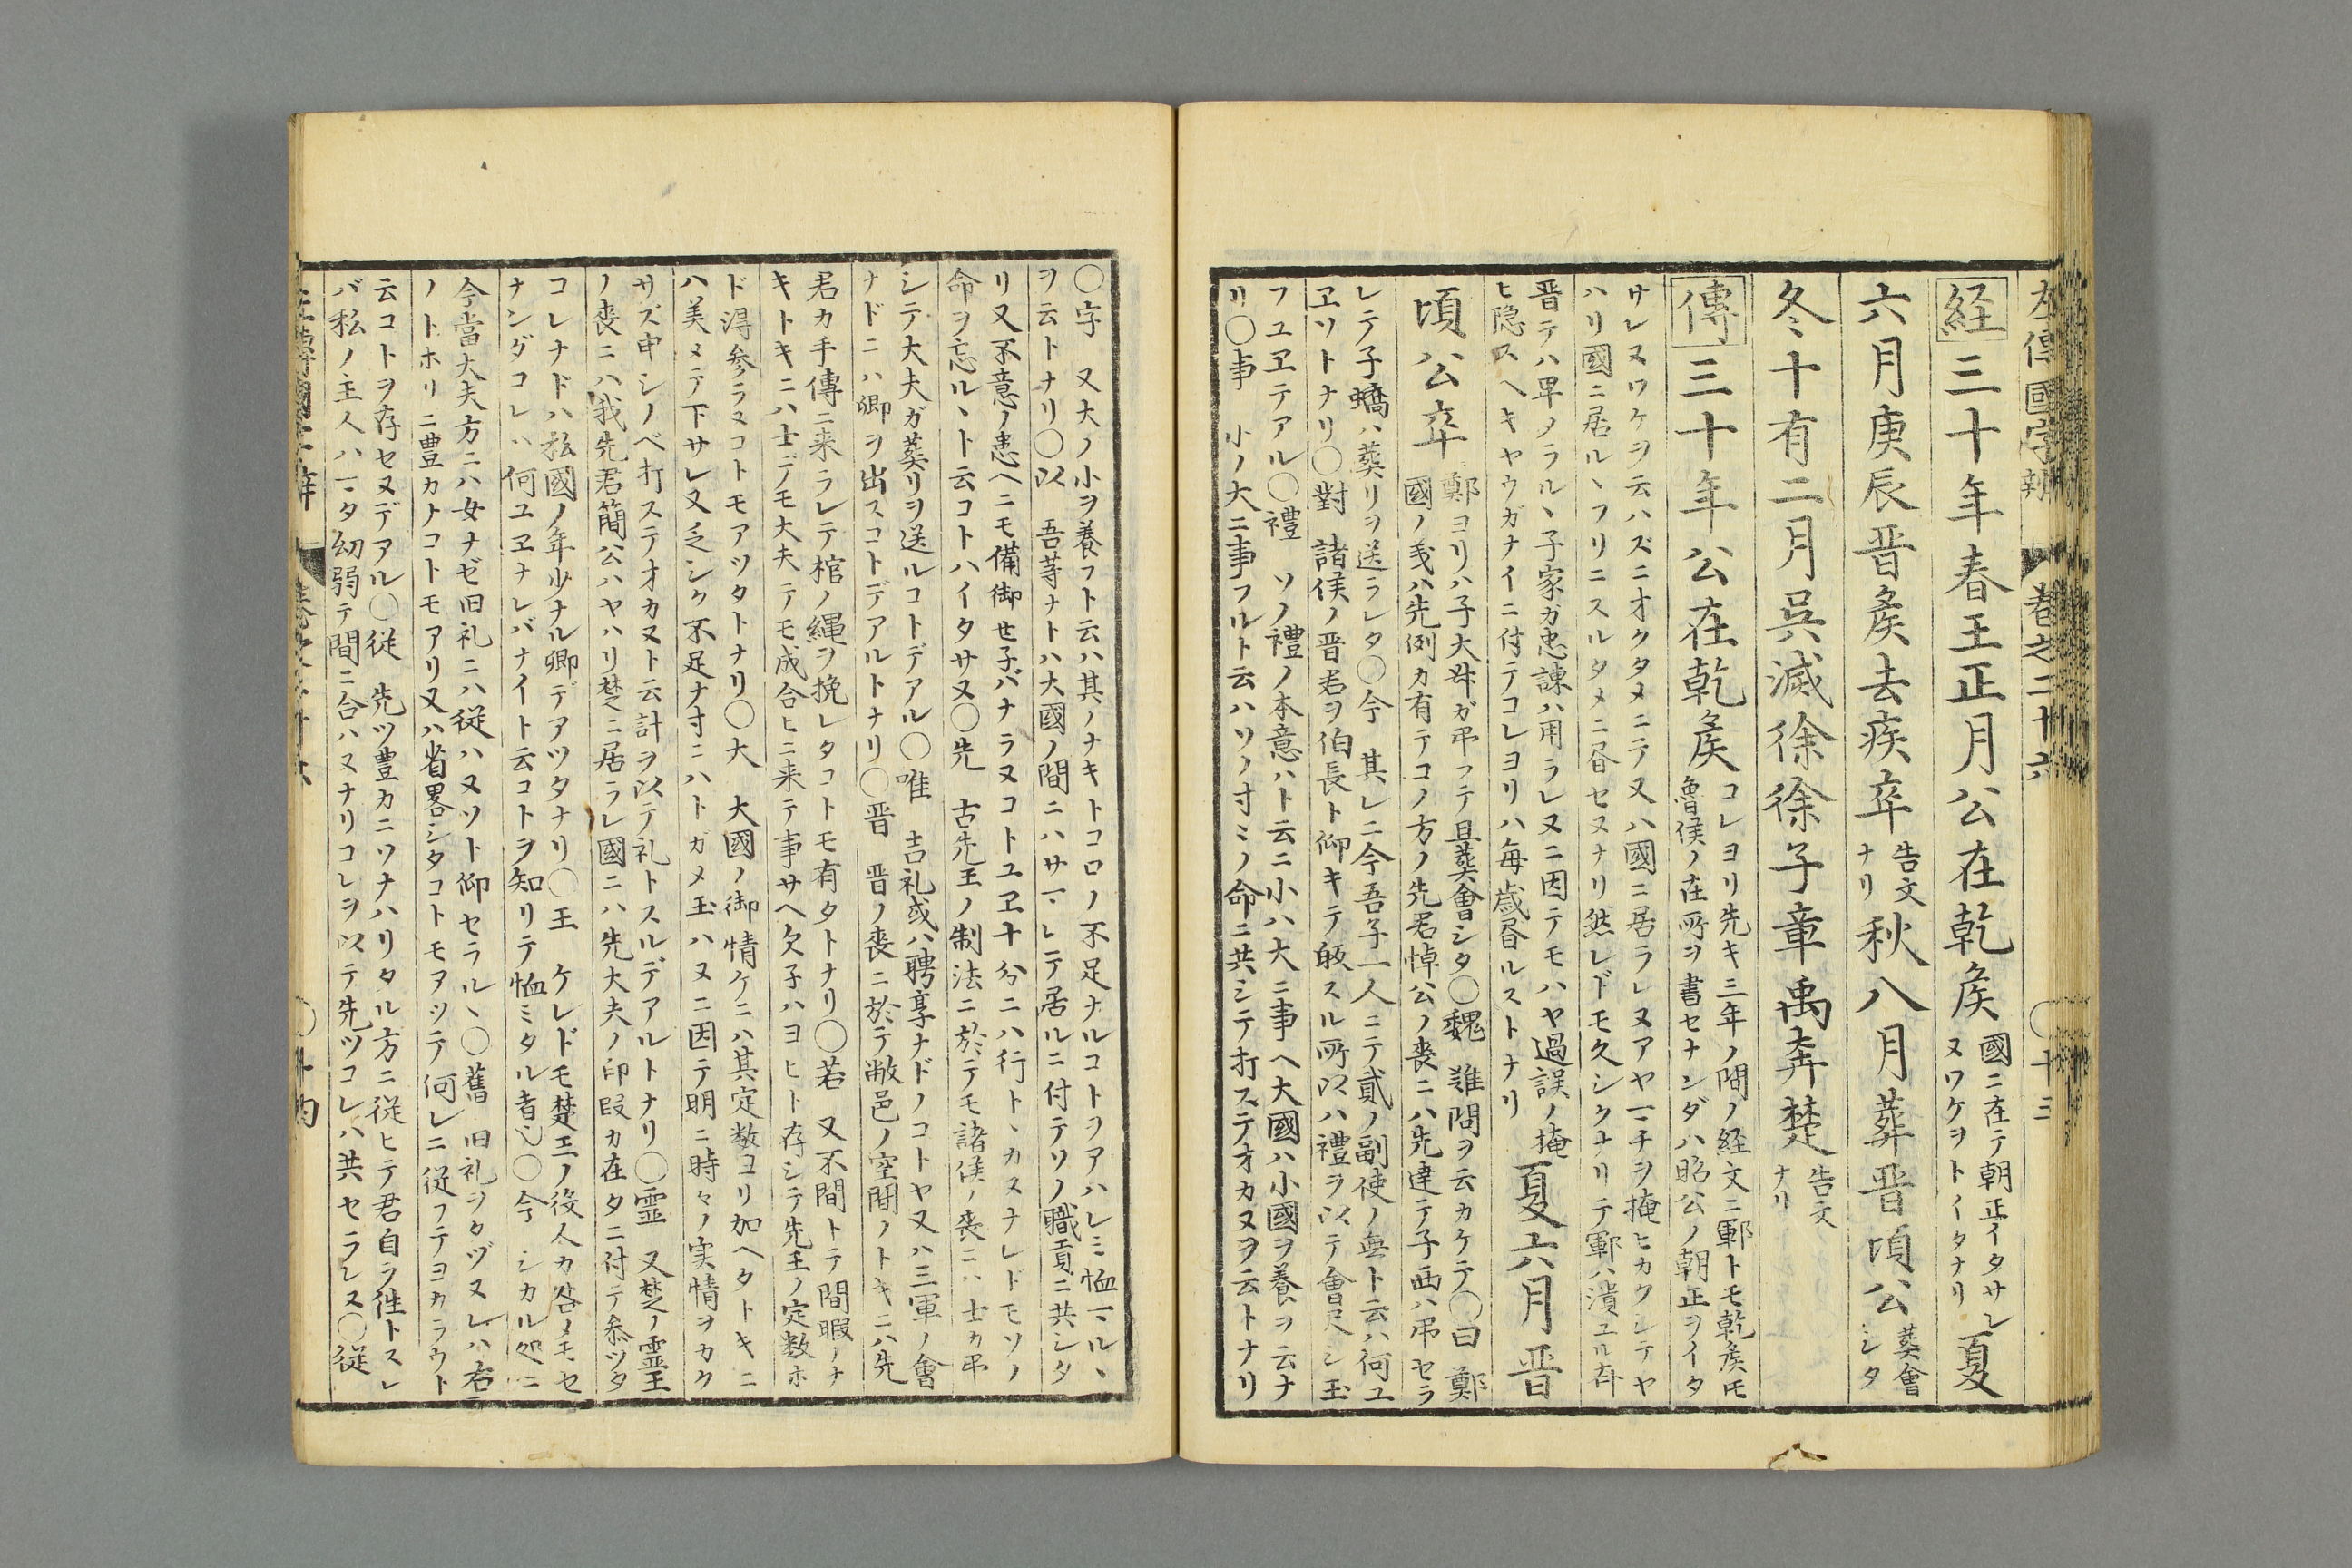 左傳國字辯 巻之二十六 〇十三
経三十年春王正月公在乾矦國ニ在テ朝正イタサレヌワケヲトイタナリ夏
六月庚辰晋矦去疾卒告文ナリ秋八月葬晋頃公葬會シタ
冬十有二月呉滅徐徐子章禹奔楚告文ナリ
傳三十年公在乾矦コレヨリ先キ三年ノ間ノ経文ニ鄆トモ乾矦トモ魯侯ノ在所ヲ書セナンダハ昭公ノ朝正ヲイタ
サレヌワケヲ云ハズニオクタメニテ又ハ國ニ居ラレヌアヤマチヲ掩ヒカクシテヤ
ハリ國ニ居ルヽフリニスルタメニ昏セヌナリ然レドモ久シクナリテ鄆ハ潰ユル
晋テハ卑メラルヽ子家ガ忠諌ハ用ラレヌニ因テモハヤ過誤ノ掩
ヒ隠スヘキヤウガナイニ付テコレヨリハ毎歳昏ルストナリ夏六月晋
頃公卒鄭ヨリハ子大叔ガ弔フテ且葬會シタ〇魏 難問ヲ云カケテ〇曰 鄭國ノ㐮ハ先例カ有テコノ方ノ先君悼公ノ喪ニハ先達テ子西ハ吊セラ
レテ子蟜ハ葬リヲ送ラレタ〇今 其レニ今吾子一人ニテ貳ノ副使ノ無ト云ハ何ユ
ヱソトナリ〇對 諸侯ノ晋君ヲ伯長ト仰キテ皈スル所以ハ禮ヲ以テ會尺シ玉
フユヱテアル〇禮 ソノ禮ノ本意ハト云ニ小ハ大ニ事ヘ大國ハ小國ヲ養ヲ云ナ
リ〇事 小ノ大ニ事フルト云ハソノ寸ミノ命ニ共シテ打ステオカヌヲ云トナリ
〇字 又大ノ小ヲ養フト云ハ其ノナキトコロノ不足ナルコトヲアハレミ恤マルヽ
ヲ云トナリ〇以 吾等ナトハ大國ノ間ニハサマレテ居ルニ付テソノ職貢ニ共シタ
リ又不意ノ患ヘニモ備御せ子バナラヌコトユヱ十分ニハ行トヽカヌナレドモソノ
命ヲ忘ルヽト云コトハイタサヌ〇先 古先王ノ制法ニ於テモ諸侯ノ喪ニハ士カ弔
シテ大夫ガ葬リヲ送ルコトデアル〇唯 吉礼或ハ聘享ナドノコトヤ又ハ三軍ノ會
ナドニハ卿ヲ出スコトデアルトナリ〇晋 晋ノ喪ニ於テ敝邑ノ空間ノトキニハ先
君カ手傳ニ来ラレテ棺ノ縄ヲ挽レタコトモ有タトナリ〇若 又不間トテ間暇ノナ
キトキニハ士デモ大夫テモ成合ヒニ来テ事サヘ欠子ハヨヒト存シテ先王ノ定数ホ
ド淂参ラヌコトモアツタトナリ〇大 大國ノ御情ケニハ其定数ヨリ加ヘタトキニ
ハ美メテ下サレ又乏シク不足ナ寸ニハトガメ玉ハヌニ因テ明ニ時々ノ実情ヲカク
サズ申シノベ打ステオカヌト云計ヲ以テ礼トスルデアルトナリ〇霊 又楚ノ霊王
ノ喪ニハ我先君簡公ハヤハリ楚ニ居ラレ國ニハ先大夫ノ印段カ在タニ付テ参ツタ
コレナドハ私國ノ年少ナル卿デアツタナリ〇王 ケレドモ楚王ノ役人カ咎メモセ
ナンダコレハ何ユヱナレバナイト云コトヲ知リテ恤ミタル者也〇今 シカル処ニ
今當大夫方ニハ女ナゼ旧礼ニハ従ハヌソト仰セラルヽ〇舊 旧礼ヲタヅヌレハ右
ノトホリニ豊カナコトモアリ又ハ省畧シタコトモアツテ何レニ従フテヨカラウト
云コトヲ存セヌデアル〇従 先ツ豊カニソナハリタル方ニ従ヒテ君自ラ往トスレ
バ私ノ主人ハマタ幼弱テ間ニ合ハヌナリコレヲ以テ先ツコレハ共セラレヌ〇従